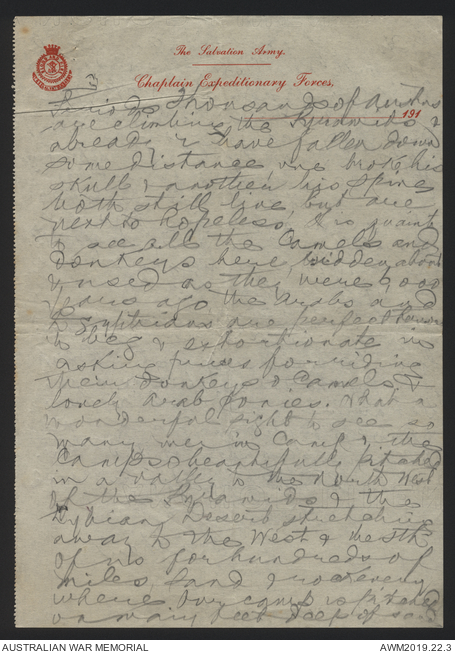 The Salvation Army.
Chaplain Expeditionary Forces,
191
thousands of
are climbing the Pyramids &
already 2 have fallen down
some distance, one broke his
skull & another his spine
both still live, but are
next to hopeless, it is quaint
to see all the Camels and
donkeys here, ridden about
& used as they were
years ago the Arabs and
Egyptians are perfect
to beg & extortionate in
asking prices for riding
their donkeys & Camels, &
lovely Arab ponies. What a
wonderful sight to see so
many men in Camp & the
Camps beautifully pitched
in a valley to the North West
of the Pyramids & the
Lybian Desert stretching
away to the West &
of us for hundreds of
miles, sand & rock every
where. Our camp is pitched
on many feet deep of
AUSTRALIAN WAR MEMORIAL
AWM2019.22.3